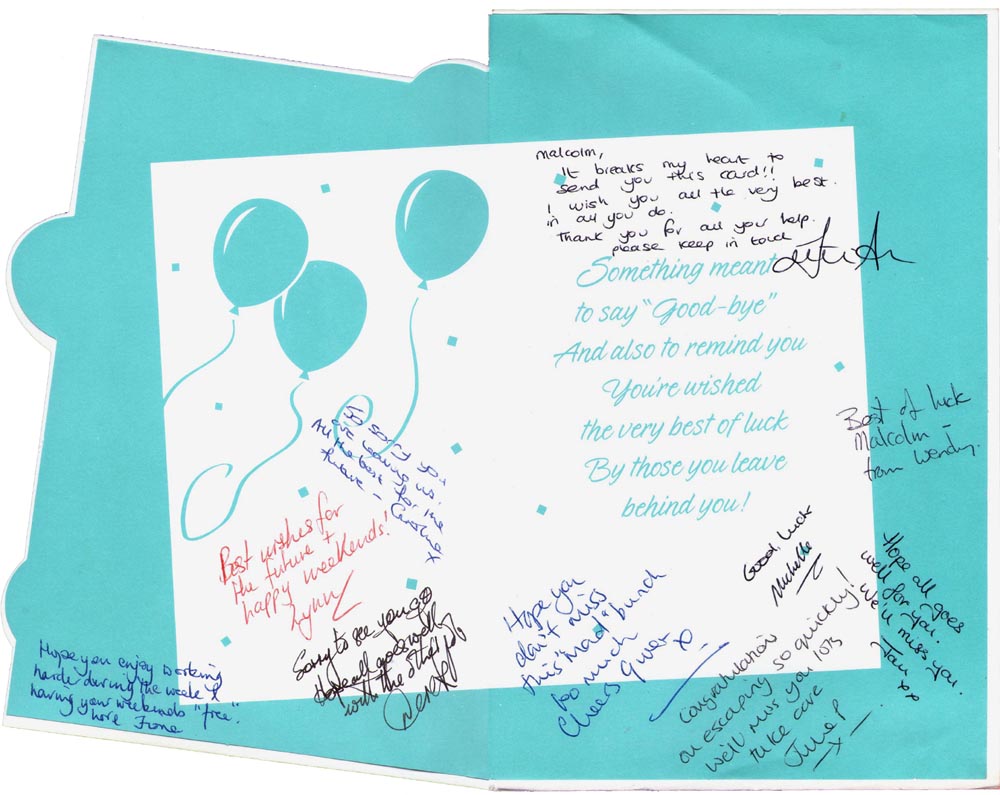 Malcolm,
It breaks my heart to
send you this card!!
I wish you all the very best.
in all you do.
Thank you for all your help.
please keep in touch
Something meant
to say "Good-bye"
And also to remind you
You're wished
the very best of luck
By those you leave
behind you!
Best of luck
Malcolm –
from Wendy.
sorry your
leaving us.
All the best for the
future – Caroline x
Best wishes for
the future +
happy weekends!
Lynn
Sorry to see you go
Hope all goes well
with the other job
Derek
Hope you enjoy working
hard during the week &
having your weekends "free".
love
Hope you
don't miss
this "mad" bunch
too much
Cheers xo
Good luck
Michelle
Congratulation
on escaping so quickly!
we'll miss you lots
take care
June P
x
Hope all goes
well for you.
We'll miss you.
Jan xx